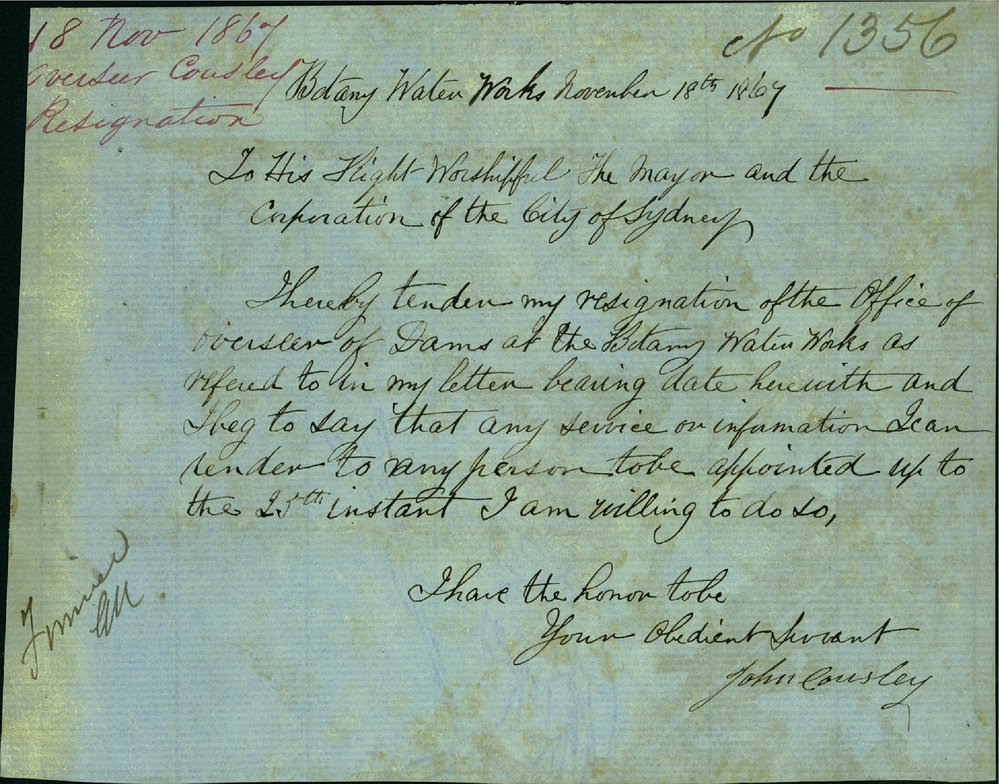 18 Nov 1867
Overseer Cousley
Resignation
No 1356
Botany Water Works November 18th 1867
To His Right Worshipful The Mayor and the
Corporation of the City of Sydney
I hereby tender my resignation of the Office of
overseer of Dams at the Botany Water Works as
refered to in my letter bearing date herewith and
I beg to say that any service or infomation I can
render to any person to be appointed up to
the 25th instant I am willing to do so,
I have the honor to be
Your Obedient Servant
John Cousley